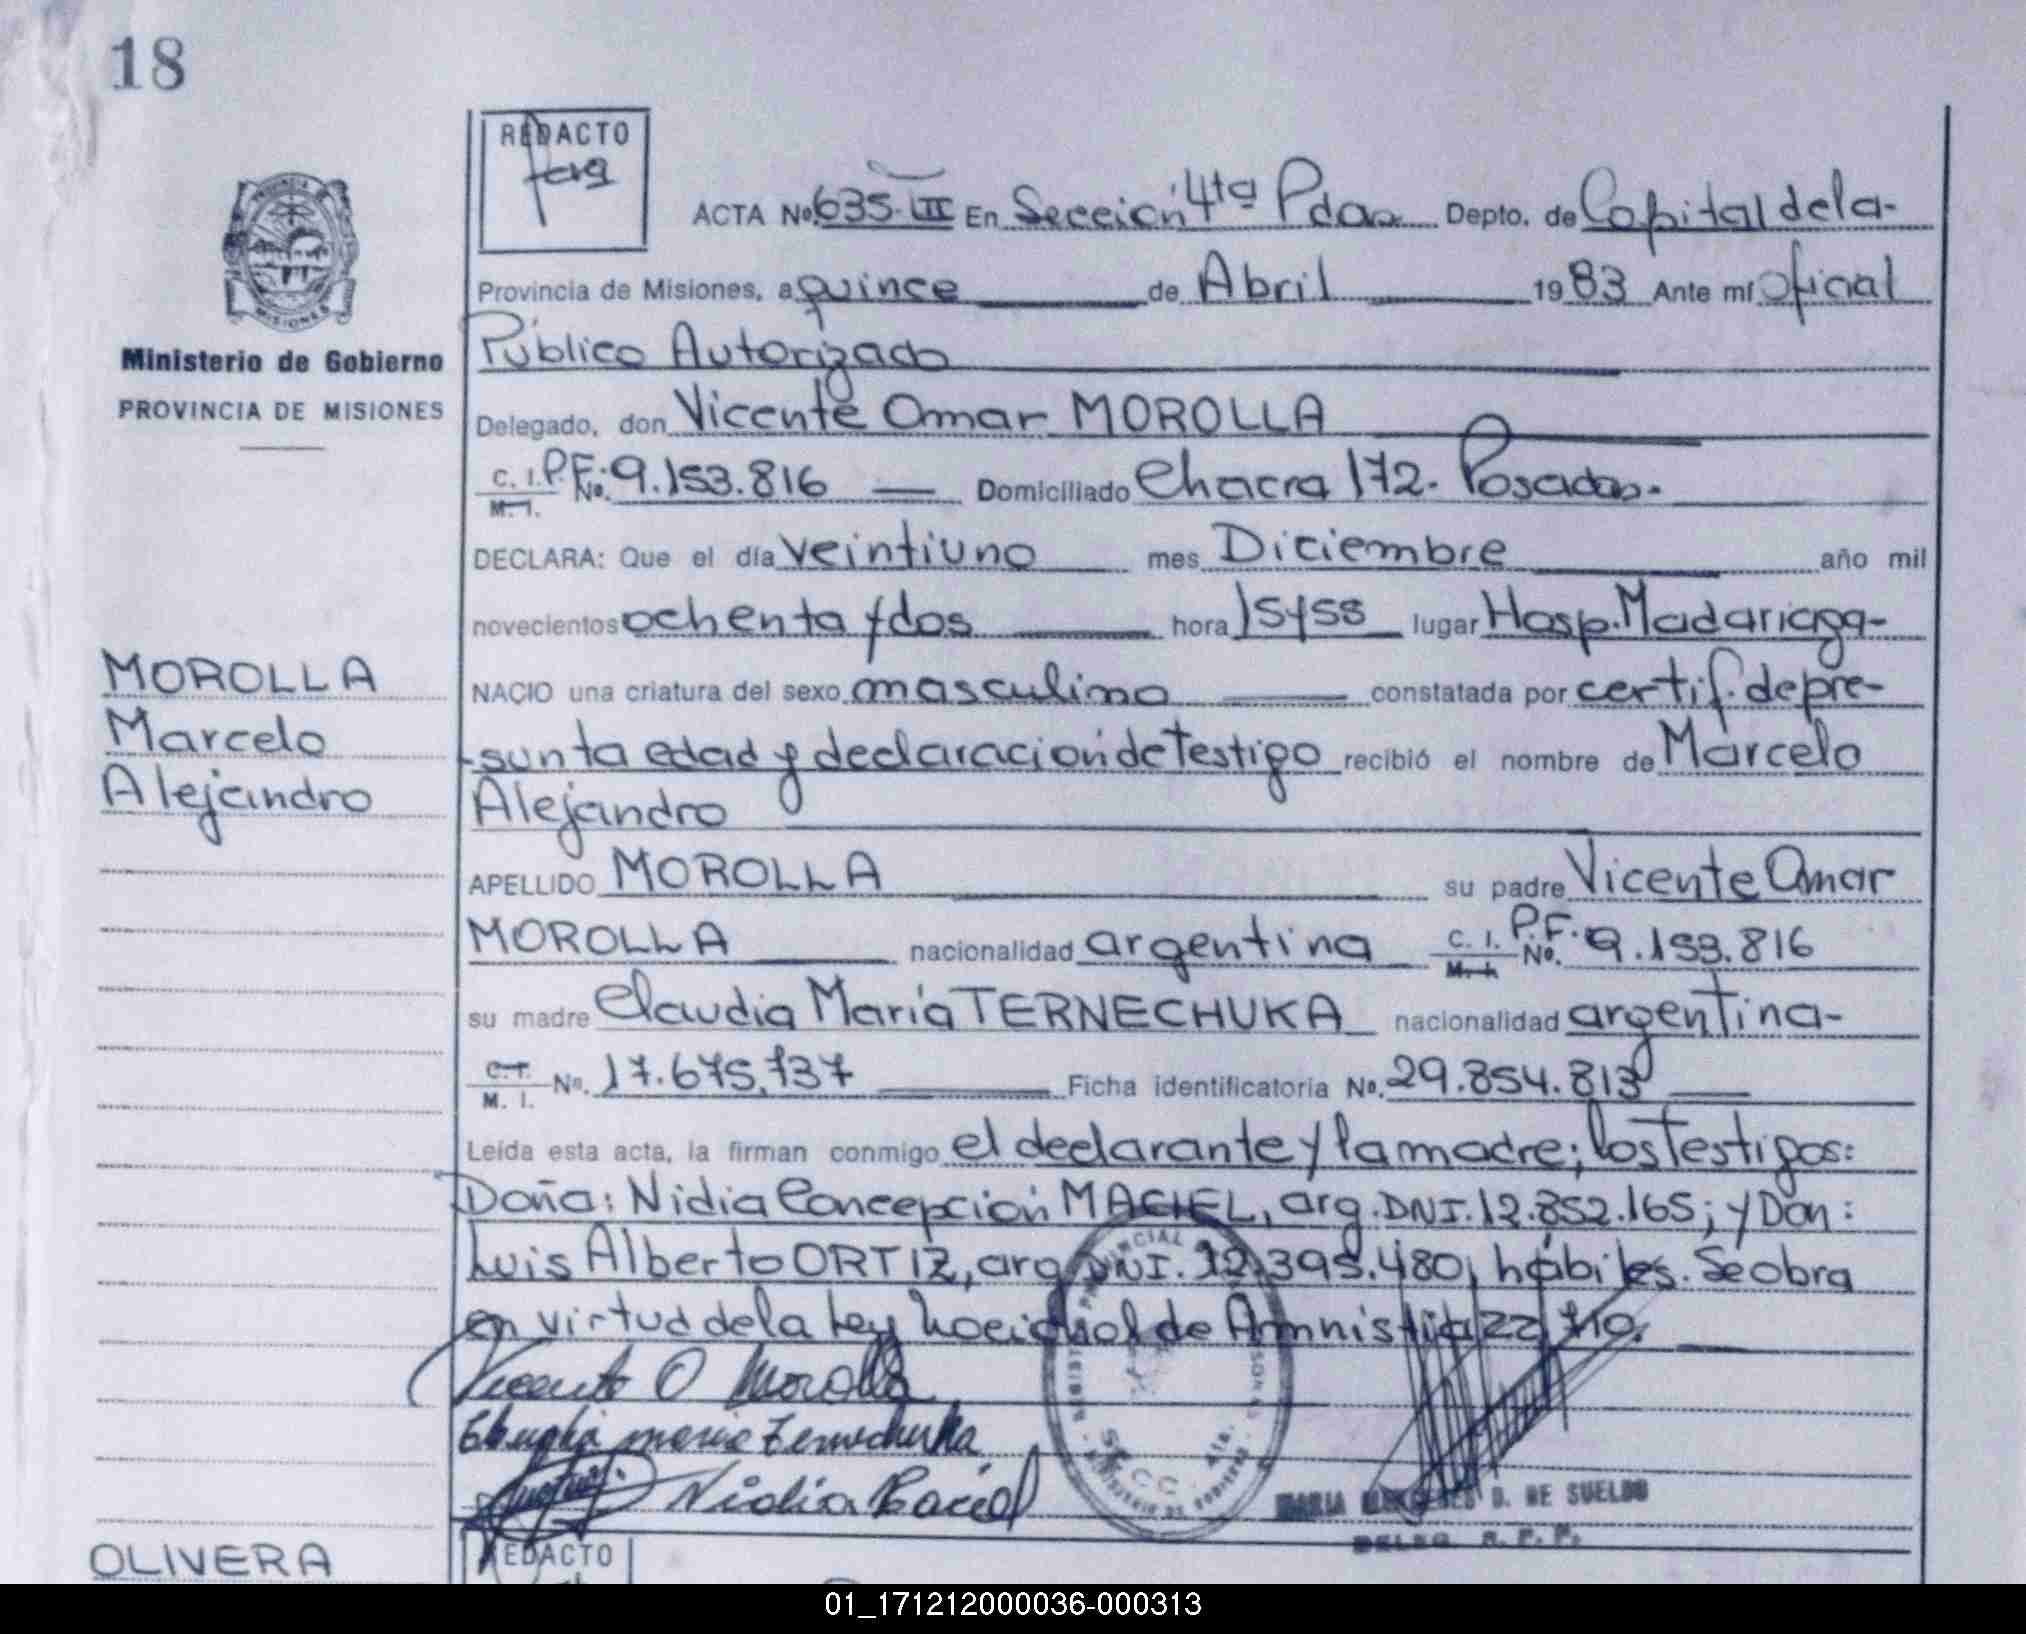 18
REDACTO
ACTA No. 635. III En Sección 4ta Pdas. Depto. de Capital de la-
Provincia de Misiones, a quince de Abril 1983 Ante mí oficial
Público Autorizado
Ministerio de Gobierno
PROVINCIA DE MISIONES
Delegado, don Vicente Omar MOROLLA
C. I. P.F. No. 9.153.816 Domiciliado Chacra 172. Posadas.
M. I.
DECLARA: Que el día veintiuno mes Diciembre año mil
novecientos ochenta y dos hora 15y55 lugar Hosp. Madariaga-
MOROLLA
Marcelo
Alejandro
NACIO una criatura del sexo masculino constatada por certif. de pre-
sunta edad y declaración de Testigo recibió el nombre de Marcelo
Alejandro
APELLIDO MOROLLA su padre Vicente Omar
MOROLLA nacionalidad argentina C. I. P.F. No. 9.153.816
M. I.
su madre Claudia María TERNECHUKA nacionalidad argentina-
C. I. No. 17.675.737 Ficha identificatoria No. 29.854.813
M. I.
Leída esta acta, la firman conmigo el declarante y la madre; los Testigos:
Doña: Nidia Concepción MACIEL, arg. DNI. 12.852.165; y Don:
Luis Alberto ORTIZ, arg. DNI. 12.395.480, hábiles. Se obra
en virtud de la Ley de Amnistía 22.710.
Vicente O Morolla
maria Ternechuka
Nidia Maciel
REGISTRO PROVINCIAL
SECC. 4ta.
MINISTERIO DE GOBIERNO
MARIA D. DE SUELDO
DELEG. R. P. P.
OLIVERA
REDACTO
01_171212000036-000313